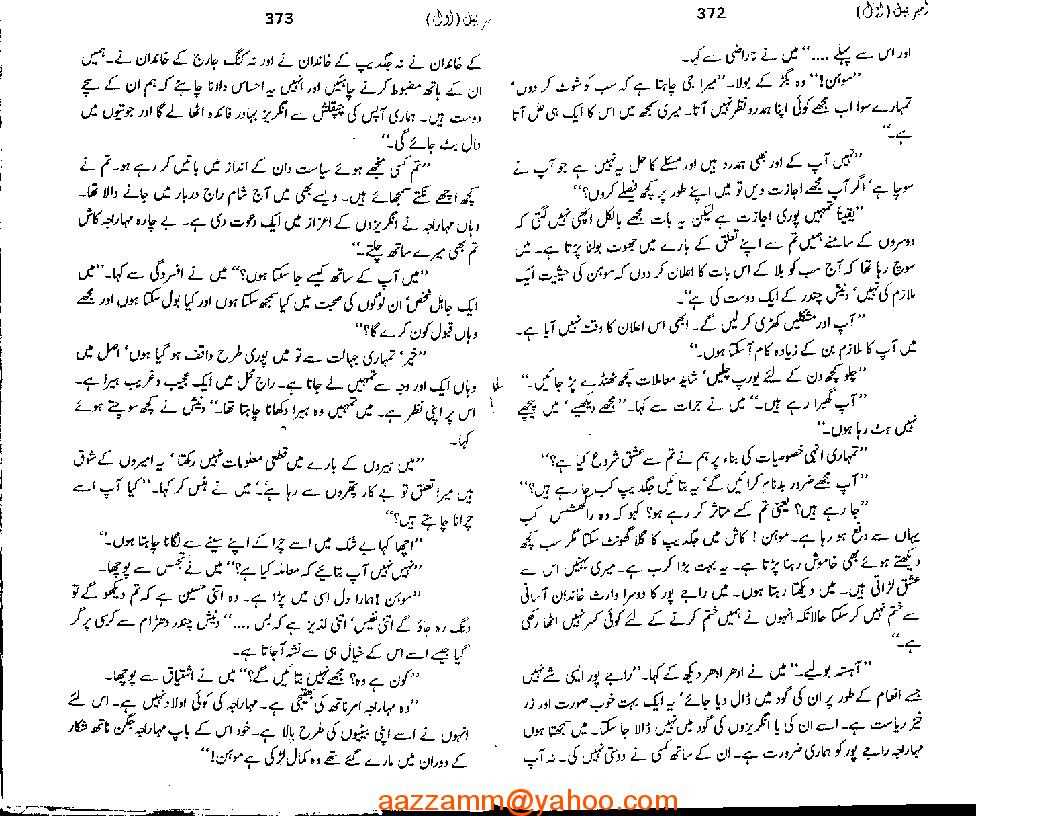 امبر بیل (اوّل)
372
اور اس سے پہلے ....“ میں نے ناراضی سے کہا۔
”موہن!“ وہ بگڑ کے بولا۔ ”میرا جی چاہتا ہے کہ سب کو شوٹ کر دوں‘
تمہارے سوا اب مجھے کوئی اپنا ہمدرد نظر نہیں آتا۔ میری سمجھ میں اس کا ایک ہی حل آتا
ہے۔“
”نہیں آپ کے اور بھی ہمدرد ہیں اور مسئلے کا حل یہ نہیں ہے جو آپ نے
سوچا ہے‘ اگر آپ مجھے اجازت دیں تو میں اپنے طور پر کچھ فیصلے کروں؟“
”یقیناً تمہیں پوری اجازت ہے لیکن یہ بات مجھے بالکل اچھی نہیں لگتی کہ
دوسروں کے سامنے ہمیں تم سے اپنے تعلق کے بارے میں جھوٹ بولنا پڑتا ہے۔ میں
سوچ رہا تھا کہ آج سب کو بلا کے اس بات کا اعلان کر دوں کہ موہن کی حیثیت ایک
ملازم کی نہیں‘ دنیش چندر کے ایک دوست کی ہے“۔
”آپ اور مشکلیں کھڑی کر لیں گے۔ ابھی اس اعلان کا وقت نہیں آیا ہے۔
میں آپ کا ملازم بن کے زیادہ کام آ سکتا ہوں۔“
”چلو کچھ دن کے لئے یورپ چلیں‘ شاید معاملات کچھ ٹھنڈے پڑ جائیں۔“
”آپ گھبرا رہے ہیں۔“ میں نے جرات سے کہا۔ ”مجھے دیکھیے‘ میں پیچھے
نہیں ہٹ رہا ہوں۔“
”تمہاری انہی خصوصیات کی بناء پر ہم نے تم سے عشق شروع کیا ہے؟“
”آپ مجھے ضرور بدنام کرائیں گے‘ یہ بتائیں جگدیپ کب جا رہے ہیں؟“
”جا رہے ہیں؟ یعنی تم کسے متاثر کر رہے ہو؟ کہو کہ وہ راکھشس کب
یہاں سے دفع ہو رہا ہے۔ موہن! کاش میں جگدیپ کا گلا گھونٹ سکتا مگر سب کچھ
دیکھتے ہوئے بھی خاموش رہنا پڑتا ہے۔ یہ بہت بڑا کرب ہے۔ میری بہنیں اس سے
عشق لڑاتی ہیں۔ میں دیکھتا رہتا ہوں۔ میں راجے پور کا دوسرا وارث خاندان آسانی
سے ختم نہیں کر سکتا حالانکہ انہوں نے ہمیں ختم کرنے کے لئے کوئی کسر نہیں اٹھا رکھی
ہے۔“
”آہستہ بولیے۔“ میں نے ادھر ادھر دیکھ کے کہا۔ ”راجے پور ایسی شے نہیں
جسے انعام کے طور پر ان کی گود میں ڈال دیا جائے‘ یہ ایک بہت خوب صورت اور زر
خیز ریاست ہے۔ اسے ان کی یا انگریزوں کی گود میں نہیں ڈالا جا سکتا۔ میں سمجھتا ہوں
مہاراجہ راجے پور کو ہماری ضرورت ہے۔ ان کے ساتھ کسی نے دوستی نہیں کی۔ نہ آپ
امبر بیل (اوّل)
373
کے خاندان نے نہ جگدیپ کے خاندان نے اور نہ کنگ جارج کے خاندان نے۔ ہمیں
ان کے ہاتھ مضبوط کرنے چاہئیں اور انہیں یہ احساس دلانا چاہئے کہ ہم ان کے سچے
دوست ہیں۔ ہماری آپس کی چپقلش سے انگریز بہادر فائدہ اٹھا لے گا اور جوتیوں میں
دال بٹ جائے گی۔“
”تم کسی منجھے ہوئے سیاست دان کے انداز میں باتیں کر رہے ہو۔ تم نے
کچھ اچھے نکتے سمجھائے ہیں۔ ویسے بھی میں آج شام راج دربار میں جانے والا تھا۔
وہاں مہاراجہ نے انگریزوں کے اعزاز میں ایک دعوت دی ہے۔ بے چارہ مہاراجہ کاش
تم بھی میرے ساتھ چلتے۔“
”میں آپ کے ساتھ کیسے جا سکتا ہوں؟“ میں نے افسردگی سے کہا۔ ”میں
ایک جاہل شخص‘ ان لوگوں کی صحبت میں کیا سمجھ سکتا ہوں اور کیا بول سکتا ہوں اور مجھے
وہاں قبول کون کرے گا؟“
”خیر‘ تمہاری جہالت سے تو میں پوری طرح واقف ہو گیا ہوں‘ اصل میں
وہاں ایک اور وجہ سے تمہیں لے جانا ہے۔ راج محل میں ایک عجیب و غریب ہیرا ہے۔
اس پر اپنی نظر ہے۔ میں تمہیں وہ ہیرا دکھانا چاہتا تھا۔“ دنیش نے کچھ سوچتے ہوئے
کہا۔
”میں ہیروں کے بارے میں قطعی معلومات نہیں رکھتا‘ یہ امیروں کے شوق
ہیں میرا تعلق تو بے کار پتھروں سے رہا ہے۔“ میں نے ہنس کر کہا۔ ”کیا آپ اسے
چرانا چاہتے ہیں؟“
”اچھا کہا بے شک میں اسے چرا کے اپنے سینے سے لگانا چاہتا ہوں۔“
”نہیں نہیں آپ بتائیے کہ معاملہ کیا ہے؟“ میں نے تجسس سے پوچھا۔
”موہن! ہمارا دل اسی میں پڑا ہے۔ وہ اتنی حسین ہے کہ تم دیکھو گے تو
دنگ رہ جاؤ گے اتنی نفیس‘ اتنی لذیذ ہے کہ بس ....“ دنیش چندر دھڑام سے کرسی پر گر
گیا جیسے اسے اس کے خیال ہی سے نشہ آ جاتا ہے۔
”کون ہے وہ؟ مجھے نہیں بتائیں گے؟“ میں نے اشتیاق سے پوچھا۔
”وہ مہاراجہ امرناتھ کی بھتیجی ہے۔ مہاراجہ کی کوئی اولاد نہیں ہے۔ اس لئے
انہوں نے اسے اپنی بیٹیوں کی طرح پالا ہے۔ خود اس کے باپ مہاراجہ جگن ناتھ شکار
کے دوران میں مارے گئے تھے وہ کمال لڑکی ہے موہن!“
aazzamm@yahoo.com